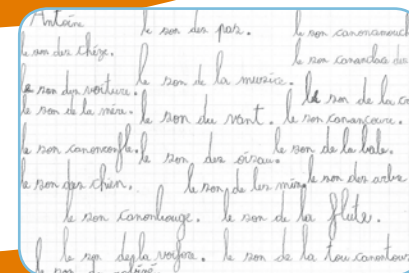 Antoine
le son des pas. le son canonconouch
le son des chèze. le son conanclad du
le son des voiture. le son de la musice. le son de la co
le son de la mère. le son du vant. le son cononcoure.
le son canonconfle. le son des oisau. le son de la bale.
le son des chien. le son de les ming le son des arbre
le son canonbouge. le son de la flute.
le son de la le son de la tou canontou
le son de